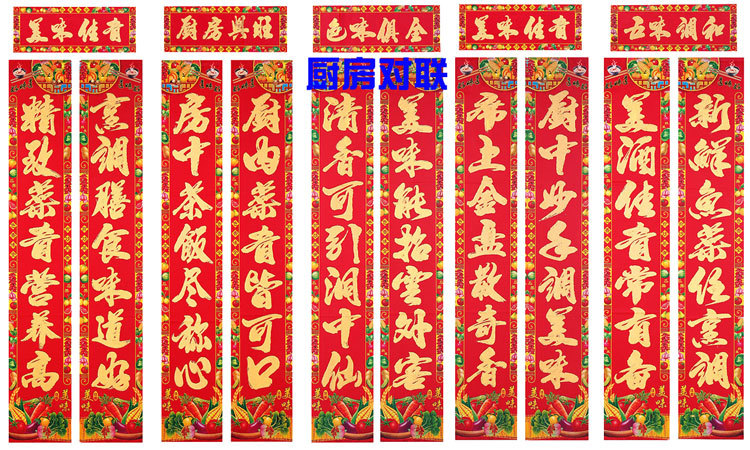 美味佳肴
厨房興旺
色味俱全
美味佳肴
五味调和
厨房对联
烹调膳食味道好
精致菜肴营养高
厨内菜肴皆可口
房中茶飯尽称心
美味能招雲外客
清香可引洞中仙
厨中妙手調美味
席上金盘散奇香
新鲜鱼菜任烹调
美酒佳肴常有备